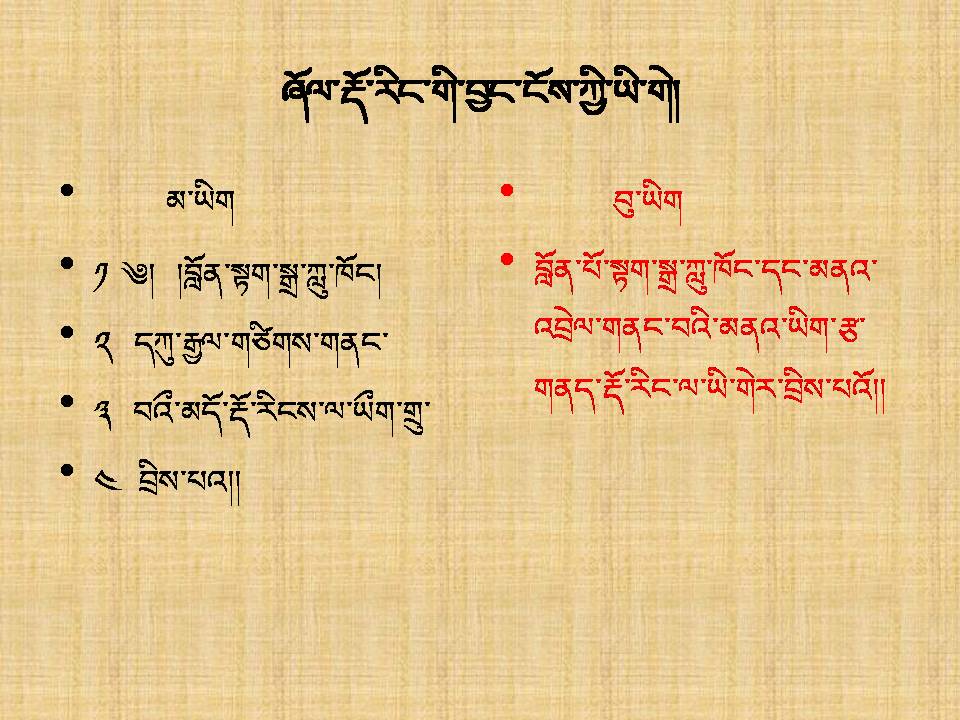 ཞོལ་རྡོ་རིང་གི་བྱང་ངོས་ཀྱི་ཡི་གེ།
མ་ཡིག
༡ ༄། །བློན་སྟག་སྒྲ་ཀླུ་ཁོང།
༢ དཀུ་རྒྱལ་གཙིགས་གནང་
༣ བའྀ་མདོ་རྡོ་རིངས་ལ་ཡྀག་གྲུ་
༤ བྲིས་པའ།།
བུ་ཡིག
བློན་པོ་སྟག་སྒྲ་ཀླུ་ཁོང་དང་མནའ་
འབྲེལ་གནང་བའི་མནའ་ཡིག་རྩ་
གནད་རྡོ་རིང་ལ་ཡི་གེར་བྲིས་པའོ།།